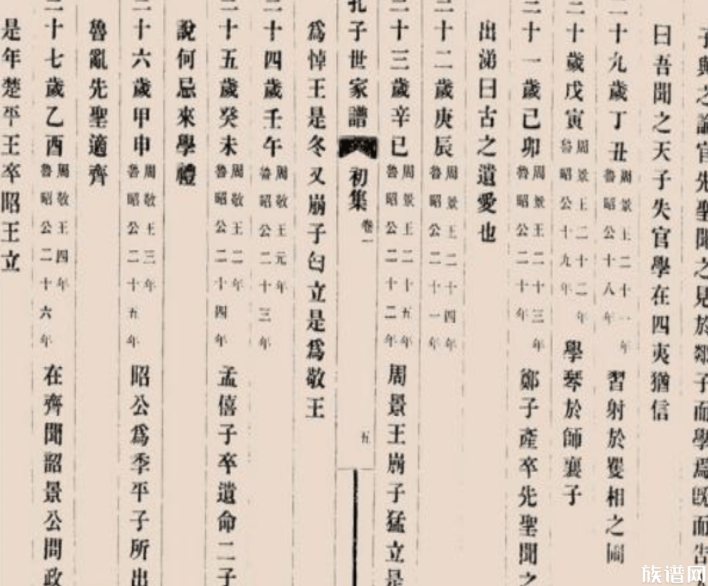 子與之論官先聖聞之見於郯子而學焉既而告
曰吾聞之天子失官學在四夷猶信
二十九歲丁丑周景王二十一年魯昭公十八年習射於矍相之圃
三十歲戊寅周景王二十二年魯昭公十九年學琴於師襄子
三十一歲己卯周景王二十三年魯昭公二十年鄭子產卒先聖聞之
出涕曰古之遺愛也
三十二歲庚辰周景王二十四年魯昭公二十一年
三十三歲辛巳周景王二十五年魯昭公二十二年周景王崩子猛立是
孔子世家譜 初集 卷一 五
爲悼王是冬又崩子匄立是爲敬王
三十四歲壬午周敬王元年魯昭公二十三年
三十五歲癸未周敬王二年魯昭公二十四年孟僖子卒遺命二子
說何忌來學禮
三十六歲甲申周敬王三年魯昭公二十五年昭公爲季平子所出
魯亂先聖適齊
三十七歲乙酉周敬王四年魯昭公二十六年在齊聞韶景公問政
是年楚平王卒昭王立
族谱网